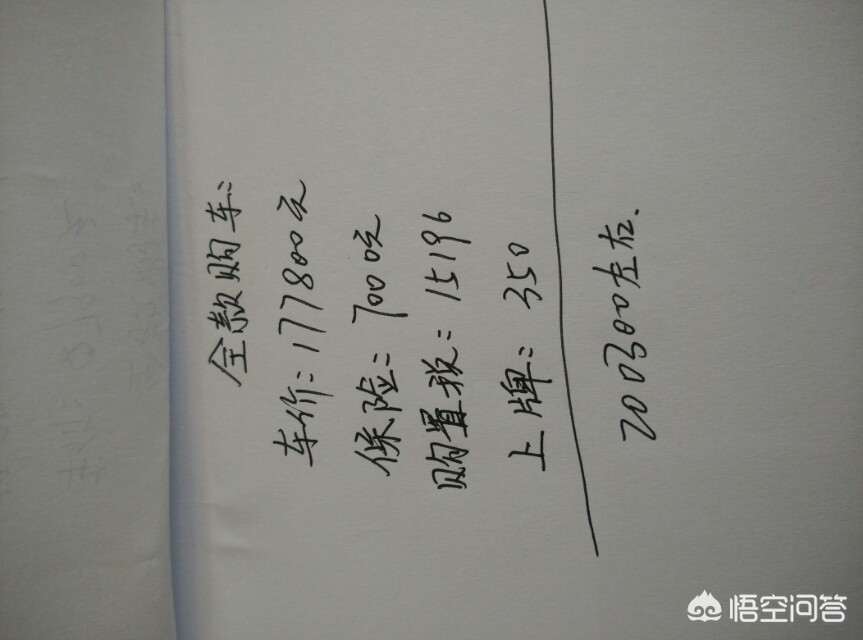 全款购车：
车价：177800元
保险：7000元
购置税：15196
上牌：350
200300左右.
悟空问答